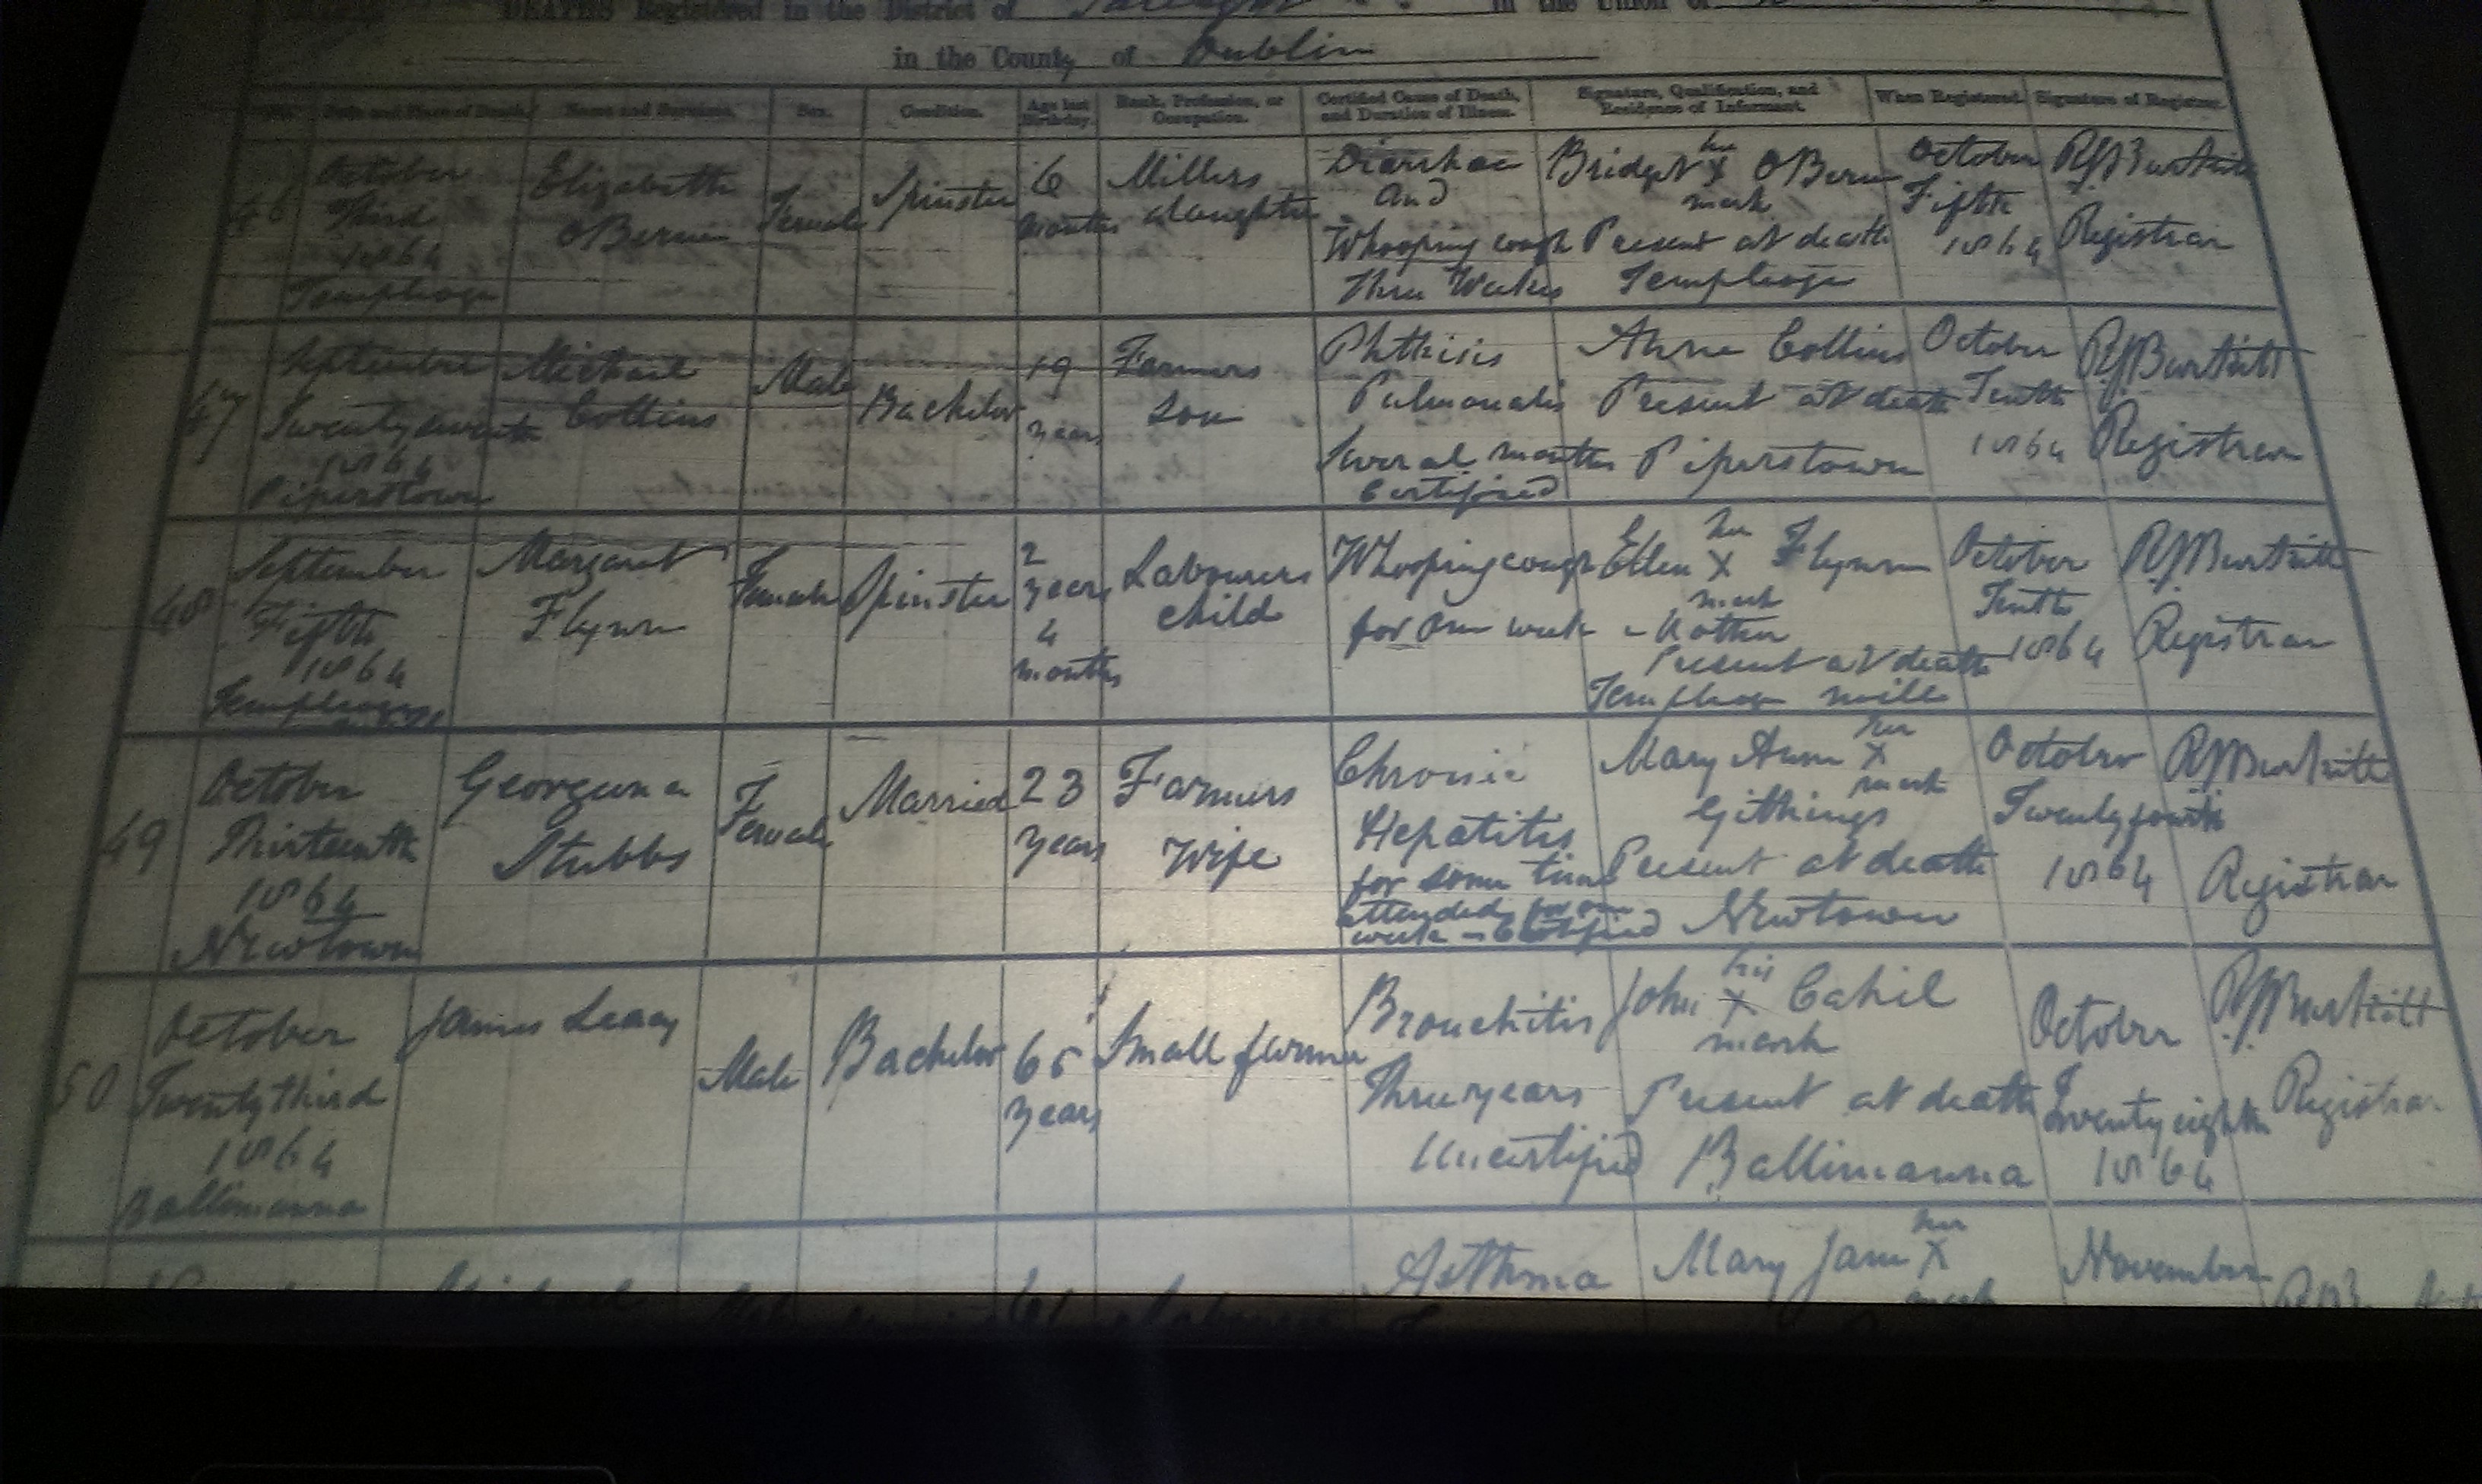 DEATHS Registered in the District of Tallaght in the Union of
in the County of Dublin
Date and Place of Death. Name and Surname. Sex. Condition. Age last Birthday. Rank, Profession, or Occupation. Certified Cause of Death, and Duration of Illness. Signature, Qualification, and Residence of Informant. When Registered. Signature of Registrar.
46
October
Third
1864
Templeoge
Elizabeth
OBerne
Female
Spinster
6
months
Millers
daughter
Diarrhoea
and
Whooping cough
Three Weeks
Bridget her X OBerne
mark
Present at death
Templeoge
October
Fifth
1864
Registrar
47
September
Twenty seventh
1864
Piperstown
Michael
Collins
Male
Bachelor
19
years
Farmers
Son
Phthisis
Pulmonalis
Several months
Certified
Anne Collins
Present at death
Piperstown
October
Tenth
1864
Registrar
48
September
Fifth
1864
Margaret
Flynn
Female
Spinster
2
years
4
months
Labourers
child
Whooping cough
for one week
Ellen her X Flynn
mark
Mother
Present at death
October
Tenth
1864
Registrar
49
October
Thirteenth
1864
Newtown
Georgeena
Stubbs
Female
Married
23
years
Farmers
Wife
Chronic
Hepatitis
for some time
attended for one
week - Certified
Mary Anne her X
mark
Githings
Present at death
Newtown
October
Twenty fourth
1864
Registrar
50
October
Twenty third
1864
Ballimanna
James Leacy
Male
Bachelor
65
years
Small farmer
Bronchitis
Three years
Uncertified
John his X Cahil
mark
Present at death
Ballimanna
October
Twenty eighth
1864
Registrar
Asthma
Mary Jane her X
mark
November